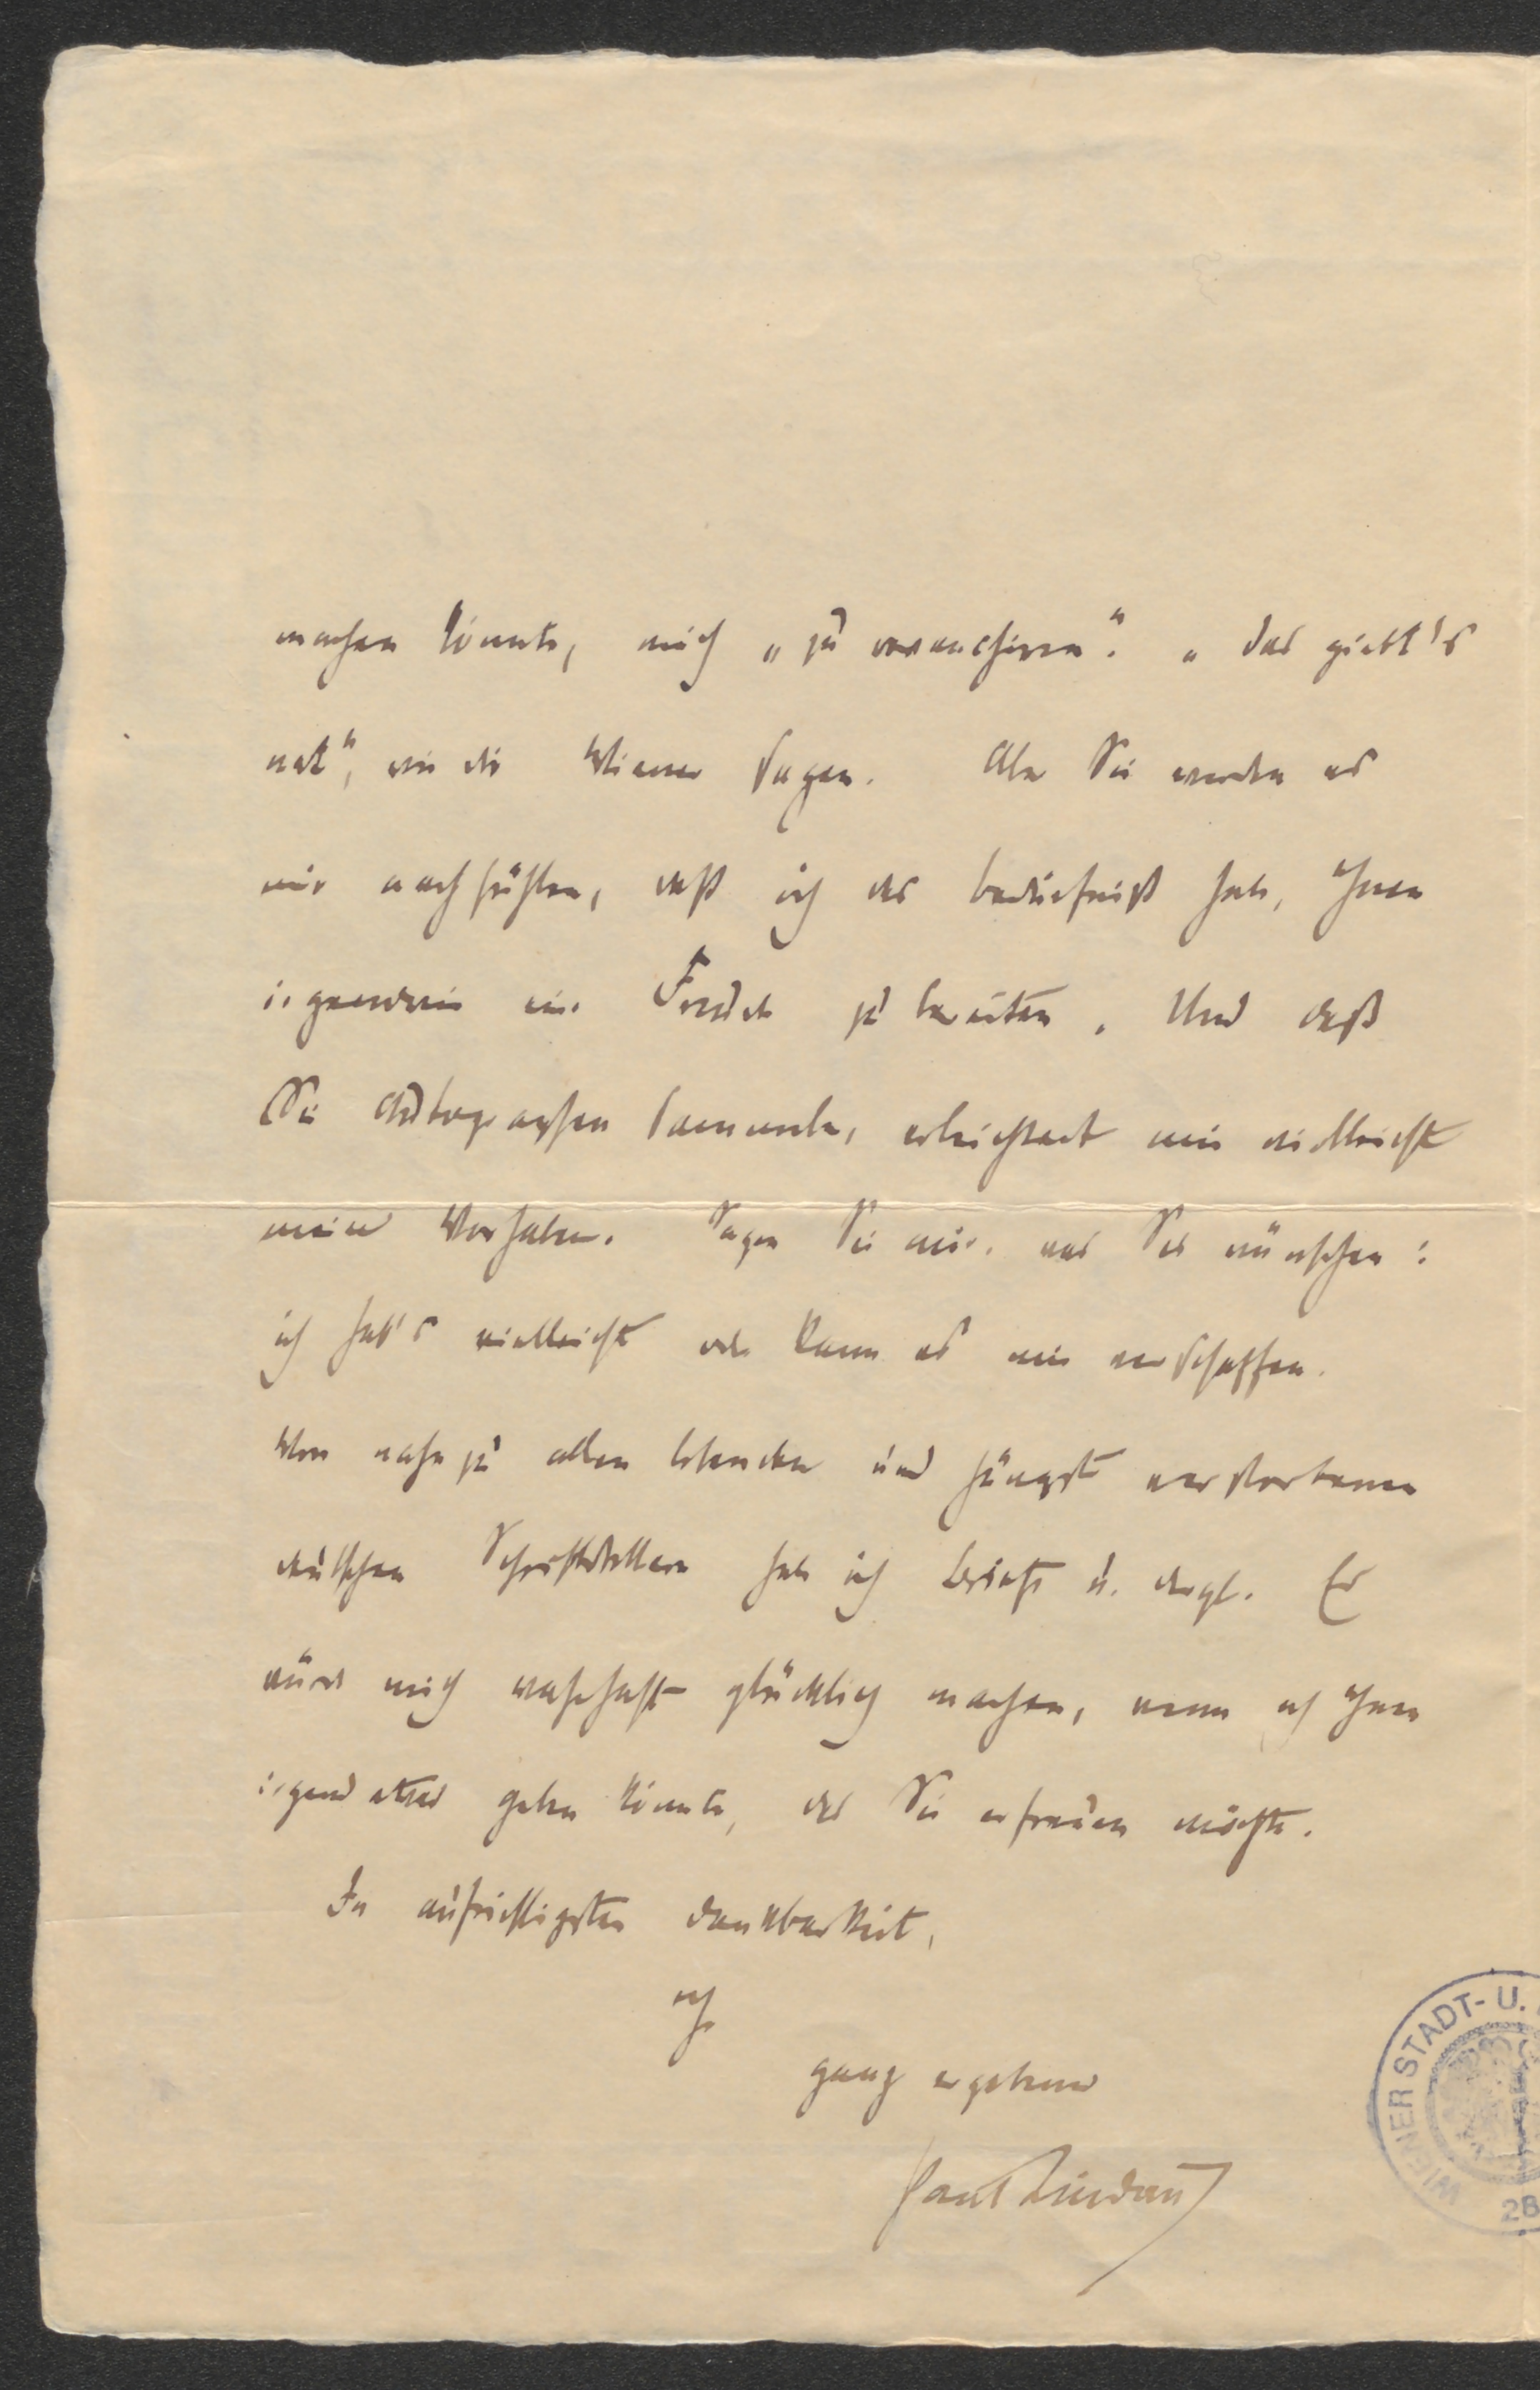 machen könnte, mich „zu revanchiren“. „Das giebt's
net“, wie die Wiener sagen. Aber Sie werden es
mir nachfühlen, daß ich das Bedürfniß habe, Ihnen
irgendwie eine Freude zu bereiten. Und daß
Sie Autographen sammeln, erleichtert mir vielleicht
mein Vorhaben. Sagen Sie mir, was Sie wünschen:
ich hab's vielleicht oder kann es mir verschaffen.
Von nahezu allen lebenden und jüngst verstorbenen
deutschen Schriftstellern habe ich Briefe u. dergl. Es
würde mich wahrhaft glücklich machen, wenn ich Ihnen
irgend etwas geben könnte, das Sie erfreuen möchte.
In aufrichtigster Dankbarkeit,
Ihr
ganz ergebener
Paul Lindau
WIENER STADT- U.